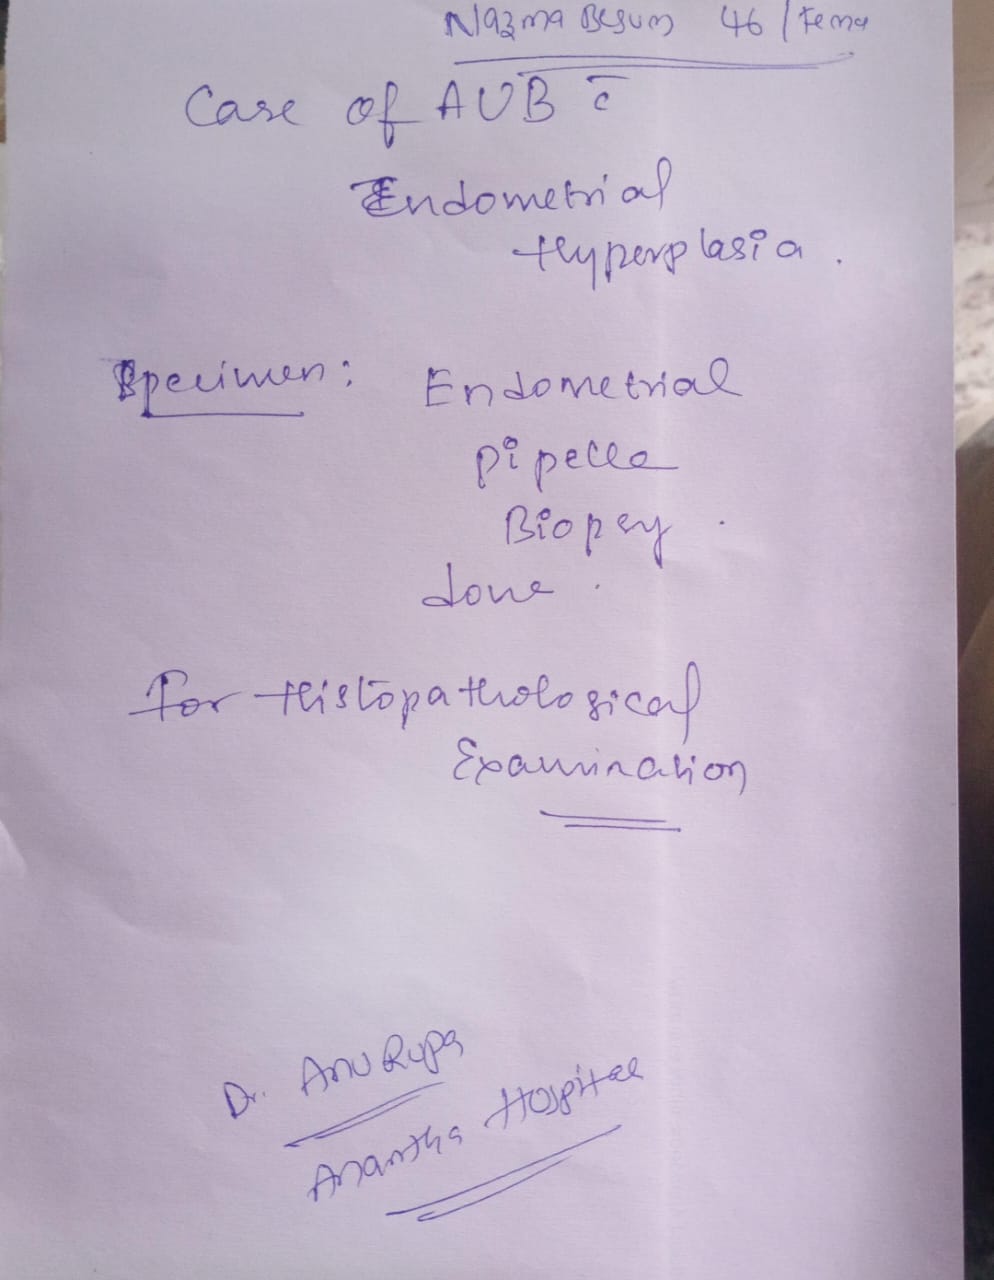 Nazma Begum 46 / Fema
Case of AUB c̄
Endometrial
Hyperplasia .
Specimen :
Endometrial
Pipelle
Biopsy .
done .
For Histopathological
Examination
Dr. Anu Rupa
Anantha Hospital